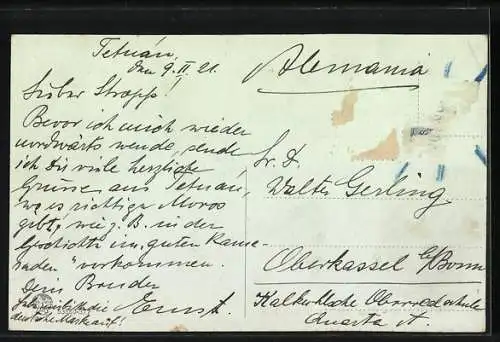 Tetuán,
den 9. II. 21.
Lieber Stropp!
Bevor ich mich wieder
nordwärts wende, sende
ich Dir viele herzliche
Grüsse aus Tetuan,
wo es richtige Moros
gibt, wie z. B. in der
Geschichte vom „guten Kame-
raden" vorkommen.
Dein Bruder
Ernst.
die
deutsche Marke auf!
Alemania
Walter Gerling
Oberkassel b/Bonn
Oberrealschule
Quarta A.